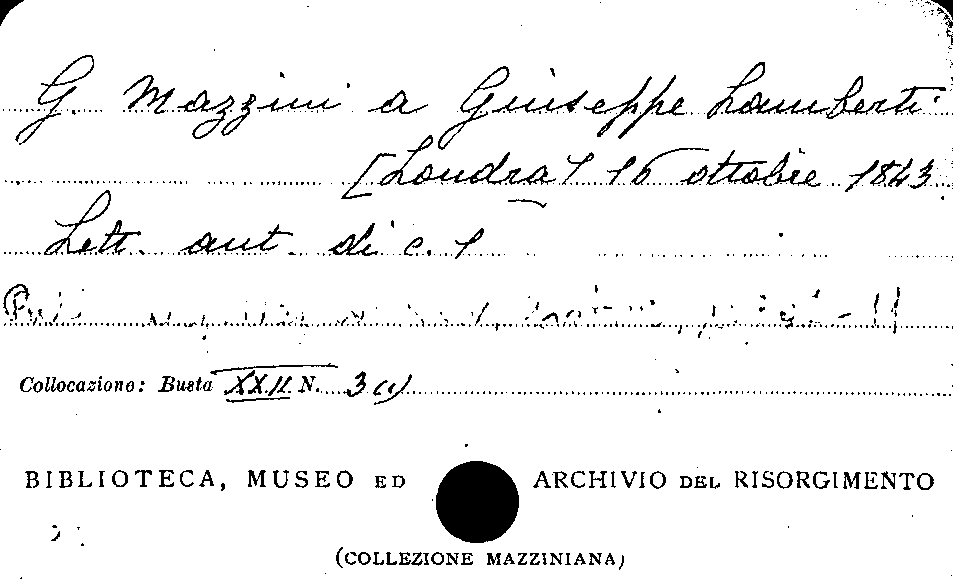 G. Mazzini a Giuseppe Lamberti
[Londra] 16 ottobre 1843
Lett. aut. di c. 1
Collocazione: Busta XXII N. 3 (1)
BIBLIOTECA, MUSEO ED ARCHIVIO DEL RISORGIMENTO
(COLLEZIONE MAZZINIANA)